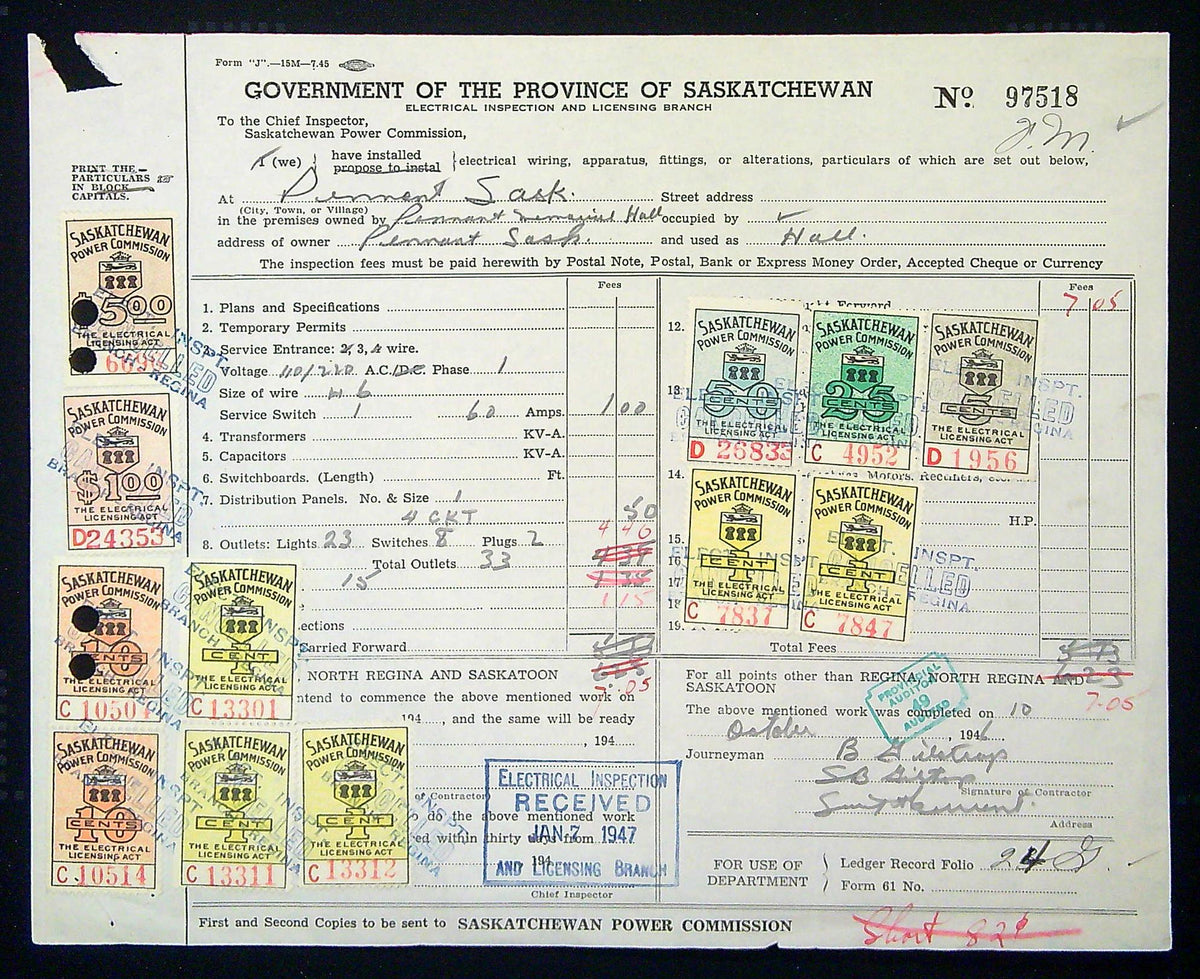 Form "J".—15M—7.45
GOVERNMENT OF THE PROVINCE OF SASKATCHEWAN
ELECTRICAL INSPECTION AND LICENSING BRANCH
No. 97518
To the Chief Inspector,
Saskatchewan Power Commission,
J.M.
I (we) have installed
propose to instal
electrical wiring, apparatus, fittings, or alterations, particulars of which are set out below,
PRINT THE
PARTICULARS
IN BLOCK
CAPITALS.
At Pennant Sask. Street address
(City, Town, or Village)
in the premises owned by Pennant Memorial Hall occupied by
address of owner Pennant Sask. and used as Hall.
The inspection fees must be paid herewith by Postal Note, Postal, Bank or Express Money Order, Accepted Cheque or Currency
Fees
1. Plans and Specifications
2. Temporary Permits
3. Service Entrance: 2, 3, 4 wire.
Voltage 110/220 A.C./D.C. Phase 1
Size of wire # 6
Service Switch 1 60 Amps. 1 00
4. Transformers KV-A.
5. Capacitors KV-A.
6. Switchboards. (Length) Ft.
7. Distribution Panels. No. & Size 1
4 CKT 50
8. Outlets: Lights 23 Switches 8 Plugs 2 4 40
Total Outlets 33
15
1 15
ections
Carried Forward
7.05
Fees
Forward 7 05
12.
13
14.
Motors, Rectifiers, etc.
H.P.
15.
16
17
18
19.
Total Fees 5 73
6 23
7-05
SASKATCHEWAN
POWER COMMISSION
$5.00
THE ELECTRICAL
LICENSING ACT
SASKATCHEWAN
POWER COMMISSION
$1.00
THE ELECTRICAL
LICENSING ACT
D24353
SASKATCHEWAN
POWER COMMISSION
10
CENTS
THE ELECTRICAL
LICENSING ACT
C 10501
SASKATCHEWAN
POWER COMMISSION
1
CENT
THE ELECTRICAL
LICENSING ACT
C 13301
SASKATCHEWAN
POWER COMMISSION
10
CENTS
THE ELECTRICAL
LICENSING ACT
C 10514
SASKATCHEWAN
POWER COMMISSION
1
CENT
THE ELECTRICAL
LICENSING ACT
C 13311
SASKATCHEWAN
POWER COMMISSION
1
CENT
THE ELECTRICAL
LICENSING ACT
C 13312
SASKATCHEWAN
POWER COMMISSION
50
CENTS
THE ELECTRICAL
LICENSING ACT
D 26833
SASKATCHEWAN
POWER COMMISSION
25
CENTS
THE ELECTRICAL
LICENSING ACT
C 4952
SASKATCHEWAN
POWER COMMISSION
5
CENTS
THE ELECTRICAL
LICENSING ACT
D 1956
SASKATCHEWAN
POWER COMMISSION
1
CENT
THE ELECTRICAL
LICENSING ACT
C 7837
SASKATCHEWAN
POWER COMMISSION
1
CENT
THE ELECTRICAL
LICENSING ACT
C 7847
ELECT. INSPT.
CANCELLED
BRANCH REGINA
NORTH REGINA AND SASKATOON
ntend to commence the above mentioned work on
194....., and the same will be ready
, 194
of Contractor
do the above mentioned work
ed within thirty days from
194
Chief Inspector
ELECTRICAL INSPECTION
RECEIVED
JAN 7 1947
AND LICENSING BRANCH
For all points other than REGINA, NORTH REGINA AND
SASKATOON
The above mentioned work was completed on 10
October, 1946
PROVINCIAL
AUDITOR
49
AUDITED
Journeyman B Gilstrap
SB Gilstrap
Signature of Contractor
Swift Current.
Address
FOR USE OF
DEPARTMENT
Ledger Record Folio 24 G
Form 61 No.
First and Second Copies to be sent to SASKATCHEWAN POWER COMMISSION
Short 82¢